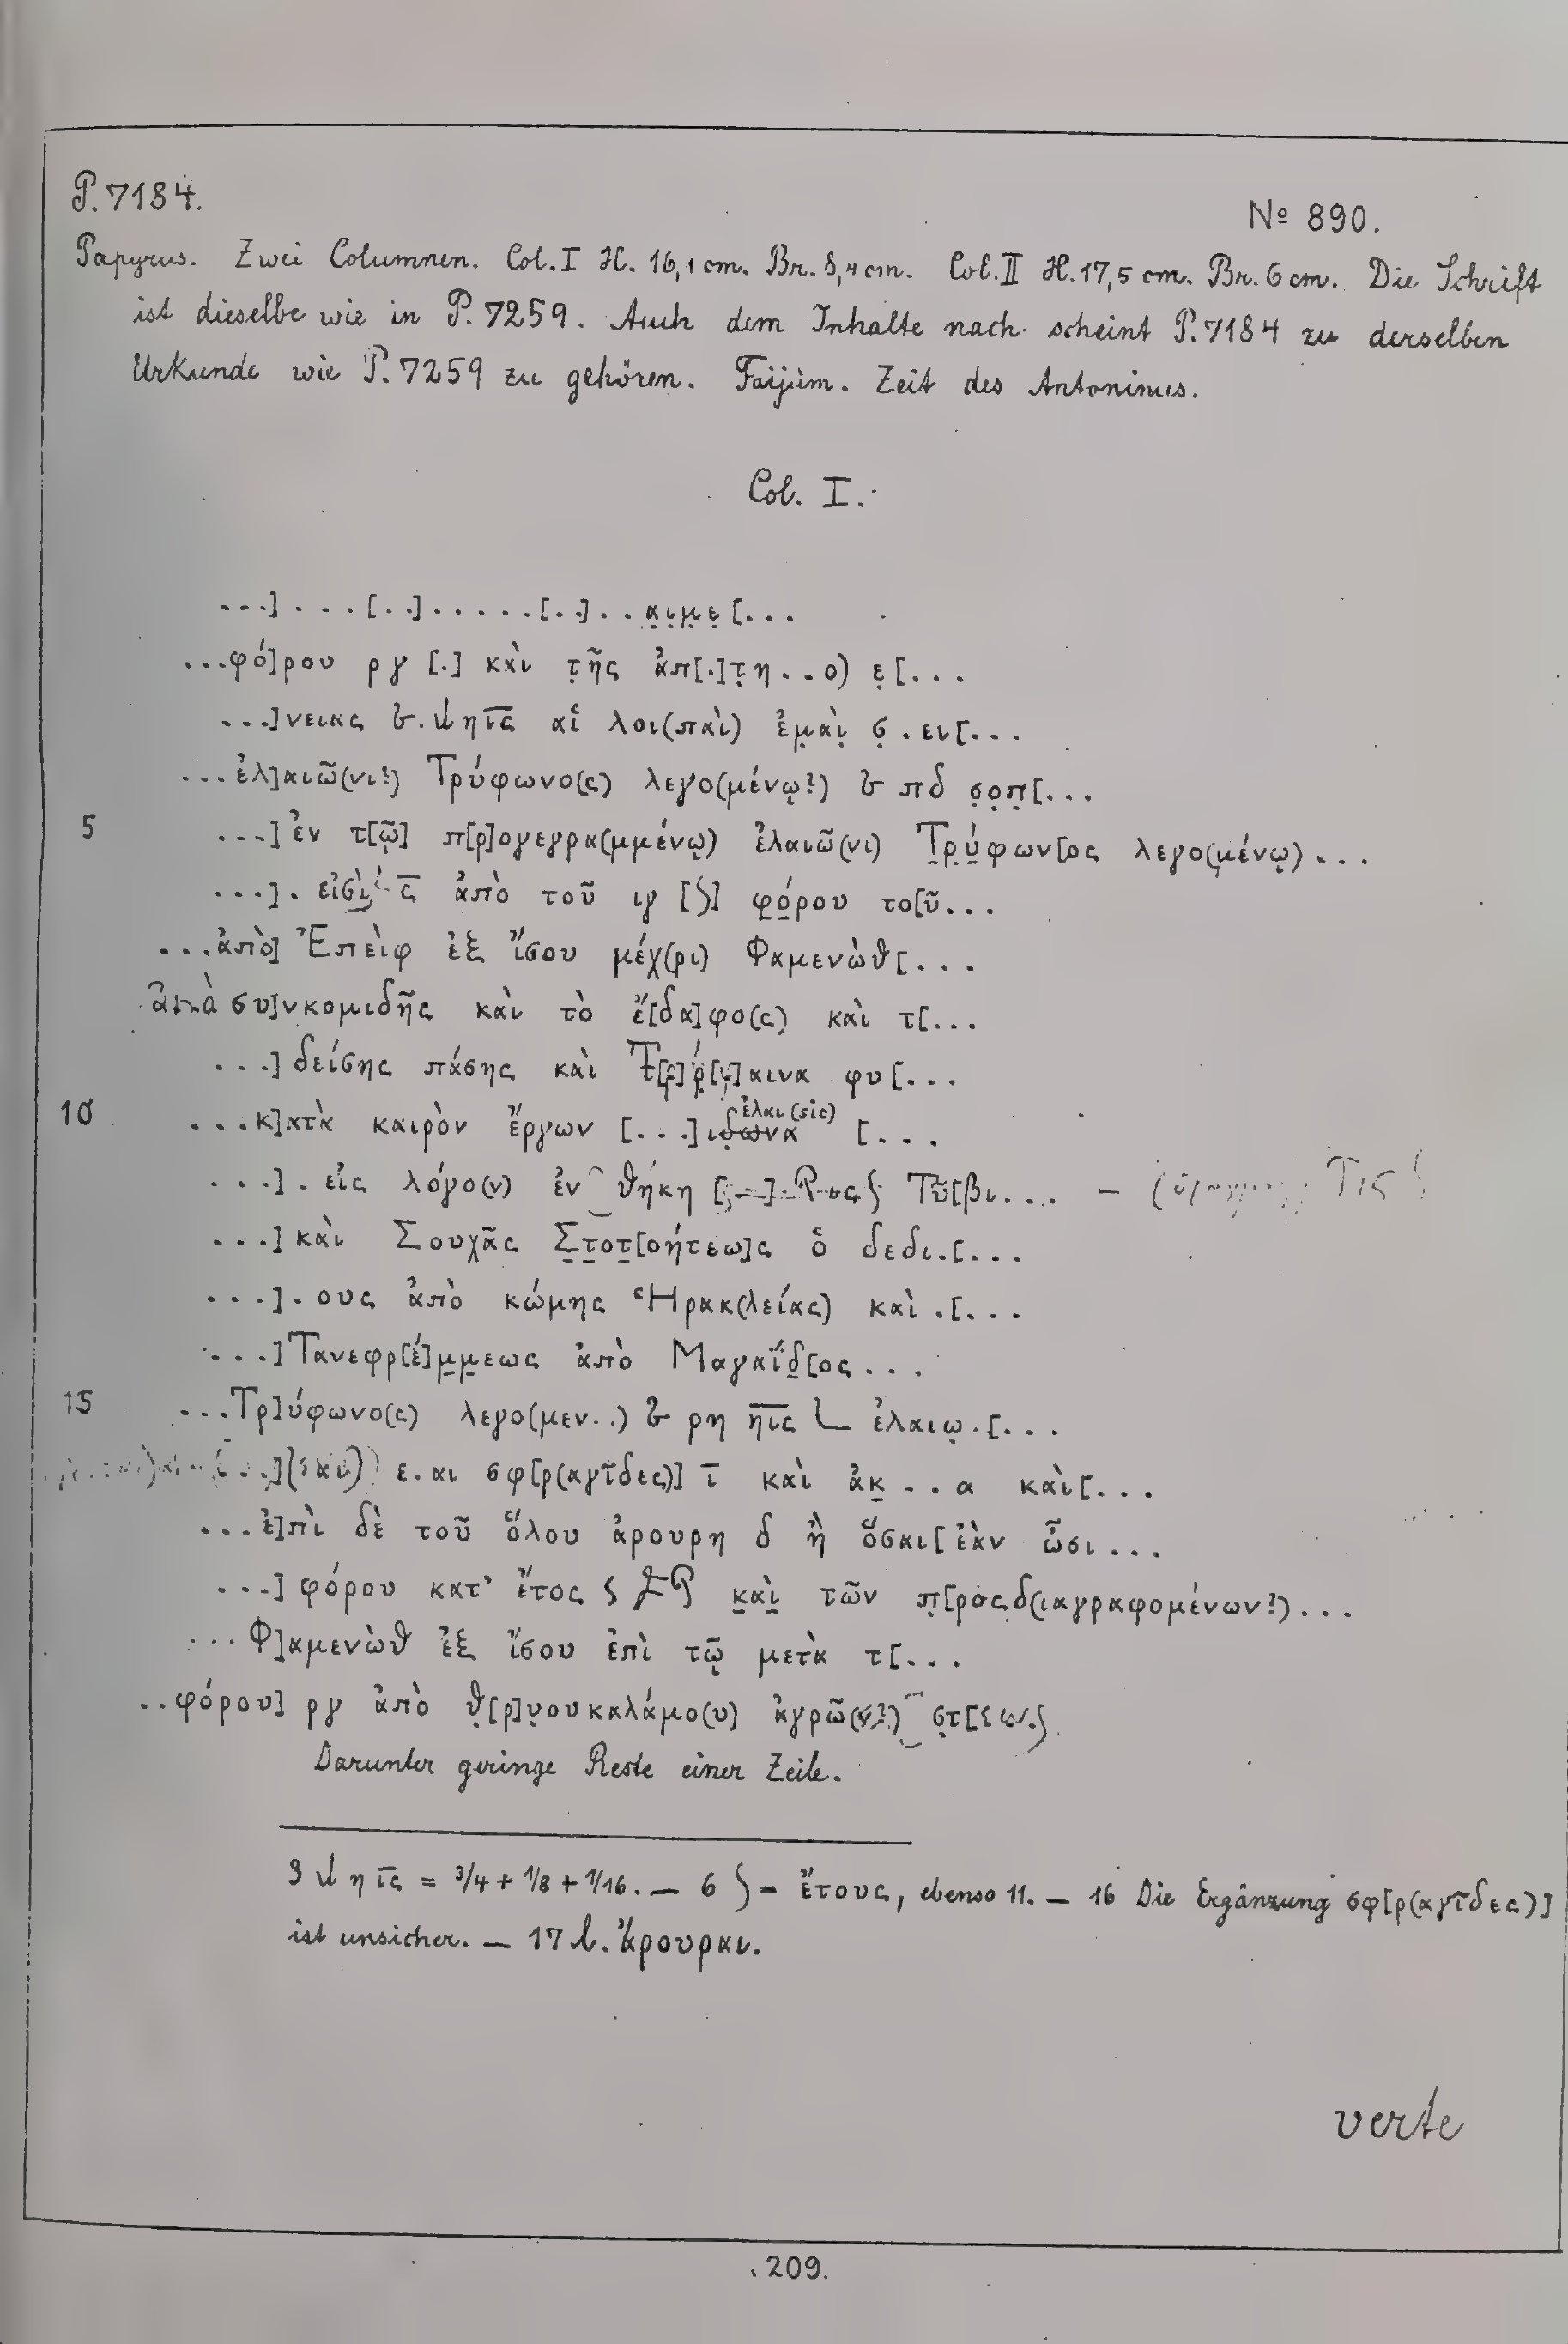 P. 7184.
Nº 890.
Papyrus. Zwei Columnen. Col. I H. 16,1 cm. Br. 8,4 cm. Col. II H. 17,5 cm. Br. 6 cm. Die Schrift
ist dieselbe wie in P. 7259. Auch dem Inhalte nach scheint P. 7184 zu derselben
Urkunde wie P. 7259 zu gehören. Faijûm. Zeit des Antoninus.
Col. I.
...] ...[..].....[..]..α̣ι̣μ̣ε̣[...
...φό]ρου ργ [.] καὶ τ̣ῆς ἀπ[.]τ̣η..ο) ε̣[...
...]νεικς αἱ λοι(παὶ) ἐμ̣αὶ̣ ϛ̣.ει[...
...ἐλ]αιῶ(νι?) Τρύφωνο(ς) λεγο(μένῳ?) πδ σ̣ο̣π̣[...
5 ...] ἐν τ[ῷ] π[ρ]ογεγρα(μμένῳ) ἐλαιῶ(νι) Τ̣ρ̣ύ̣φων[ος λεγο(μένῳ)...
...]. εἰσὶ ϛ̅ ἀπὸ τοῦ ιγ [ʃ] φ̣ό̣ρου το[ῦ...
...ἀπὸ] Ἐπεὶφ ἐξ ἴσου μέχ(ρι) Φαμενὼθ[...
συ]νκομιδῆς καὶ τὸ ἔ[δα]φο(ς) καὶ τ[...
...] δείσης πάσης καὶ αινα φυ[...
10 ...κ]ατὰ καιρὸν ἔργων [...]ιδωνα ἐλαι (sic) [...
...]. εἰς λόγο(ν) ἐν θήκη Τῦ[βι...
...] καὶ Σουχᾶς Σ̣τ̣οτ̣[οήτεω]ς ὁ δεδι.[...
...]. ους ἀπὸ κώμης Ἡρακ(λείας) καὶ .[...
...] Τανεφρ[έ]μ̣μ̣εως ἀπὸ Μαγαΐδ̣[ος...
15 ...Τρ]ύφωνο(ς) λεγο(μεν..) ρη η̅ι̅ς̅ ∟ ἐλαιῳ.[...
ε.αι σφ[ρ(αγῖδες)] ι̅ καὶ ἀκ̣...α καὶ[...
...ἐ]πὶ δὲ τοῦ ὅλου ἀρουρη δ ἢ ὅσαι[ἐὰν ὦσι...
...] φόρου κατ' ἔτος κ̣αὶ̣ τῶν π̣[ροςδ(ιαγραφομένων?)...
...Φ]αμενὼθ ἐξ ἴσου ἐπὶ τῷ μετὰ τ[...
..φόρου] ργ ἀπὸ θ̣[ρ]υ̣οκαλάμο(υ) ἀγρῶ
Darunter geringe Reste einer Zeile.
3 η ι̅ς̅ = 3/4 + 1/8 + 1/16. — 6 ʃ = ἔτους, ebenso 11. — 16 Die Ergänzung σφ[ρ(αγῖδες)]
ist unsicher. — 17 l. ἄρουραι.
verte
209.